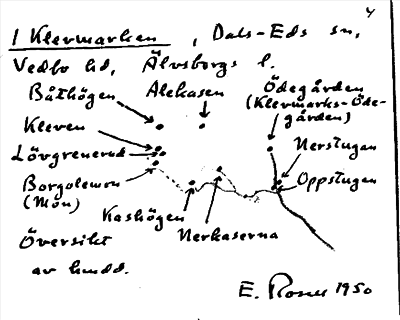 4
I Klevmarken, Dals-Eds sn,
Vedbo hd, Älvsborgs l.
Båthögen
Alekasen
Ödegården
(Klevmarks-Öde-
gården)
Kleven
Nerstugan
Lövgrenered
Borgolemon
(Mon)
Oppstugan
Kashögen
Nerkaserna
Översikt
av hmdd.
E. Rosell 1950